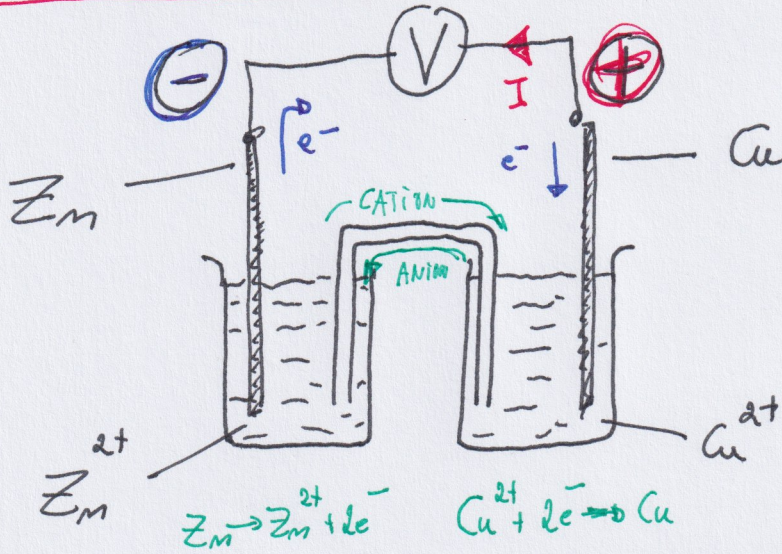 - V I +
e⁻ e⁻
Zn Cu
CATION
ANION
Zn²⁺ Cu²⁺
Zn → Zn²⁺ + 2e⁻ Cu²⁺ + 2e⁻ → Cu